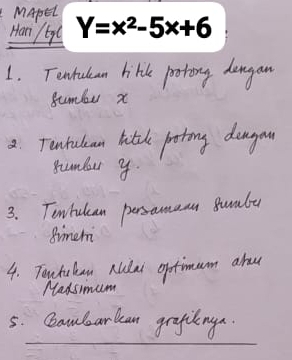 MAPEL
Hari / Tgl
Y=x²-5x+6
1. Tentukan titik potong dengan
sumbu x
2. Tentukan titik potong dengan
sumbu y.
3. Tentukan persamaan sumbu
simetri
4. Tentukan Nilai optimum atau
Maksimum
5. Gambarkan grafiknya.